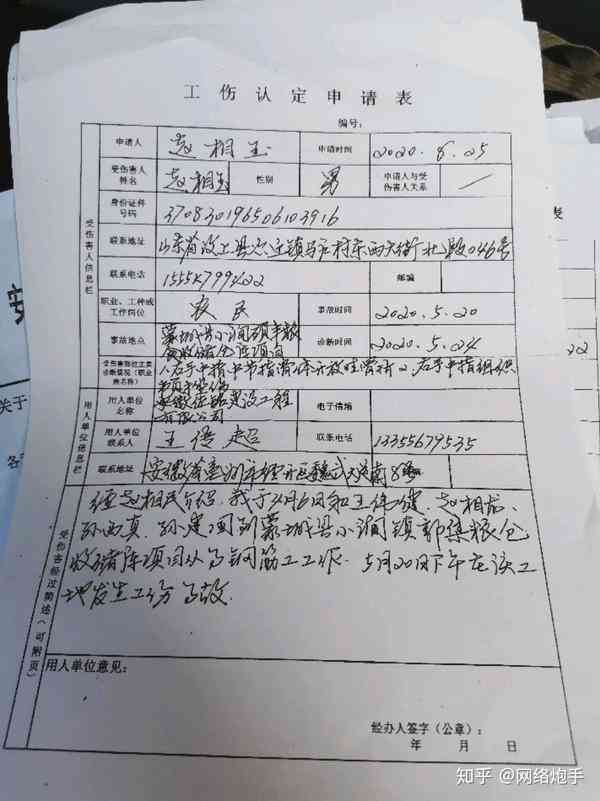 工伤认定申请表
编号:
申请人 赵相玉 申请时间 2020.8.25
受伤害人姓名 赵相玉 性别 男 申请人与受伤害人关系 /
身份证件号码 370830196506103916
联系地址 山东省汶上县 镇 村东西大街北 046号
联系电话 邮编
职业、工种或工作岗位 农民 事故时间 2020.5.20
事故地点 蒙城县小涧镇
收储 库项目 诊断时间 2020.5.24
受伤害部位主要诊断情况(职业病名称) 1右手中指中节指骨 开放性骨折2、右手中指组织
用人单位名称 安徽 建设工程
有限公司 电子信箱
用人单位联系人 王 超 联系电话 13355679535
联系地址 安徽省 州市经开区 南8
受伤害人信息栏
用人单位信息栏
受伤害经过简述(可附页)
经赵相民介绍,我于 月6日和王伟 、赵相龙、
孙西真、孙建国到蒙城县小涧镇郭集粮仓
收储库项目从事钢筋工工作.5月20日下午在该工
地发生工伤事故.
用人单位意见:
经办人签字(公章):
年 月 日
表
22
关于
各
知乎 @网络炮手